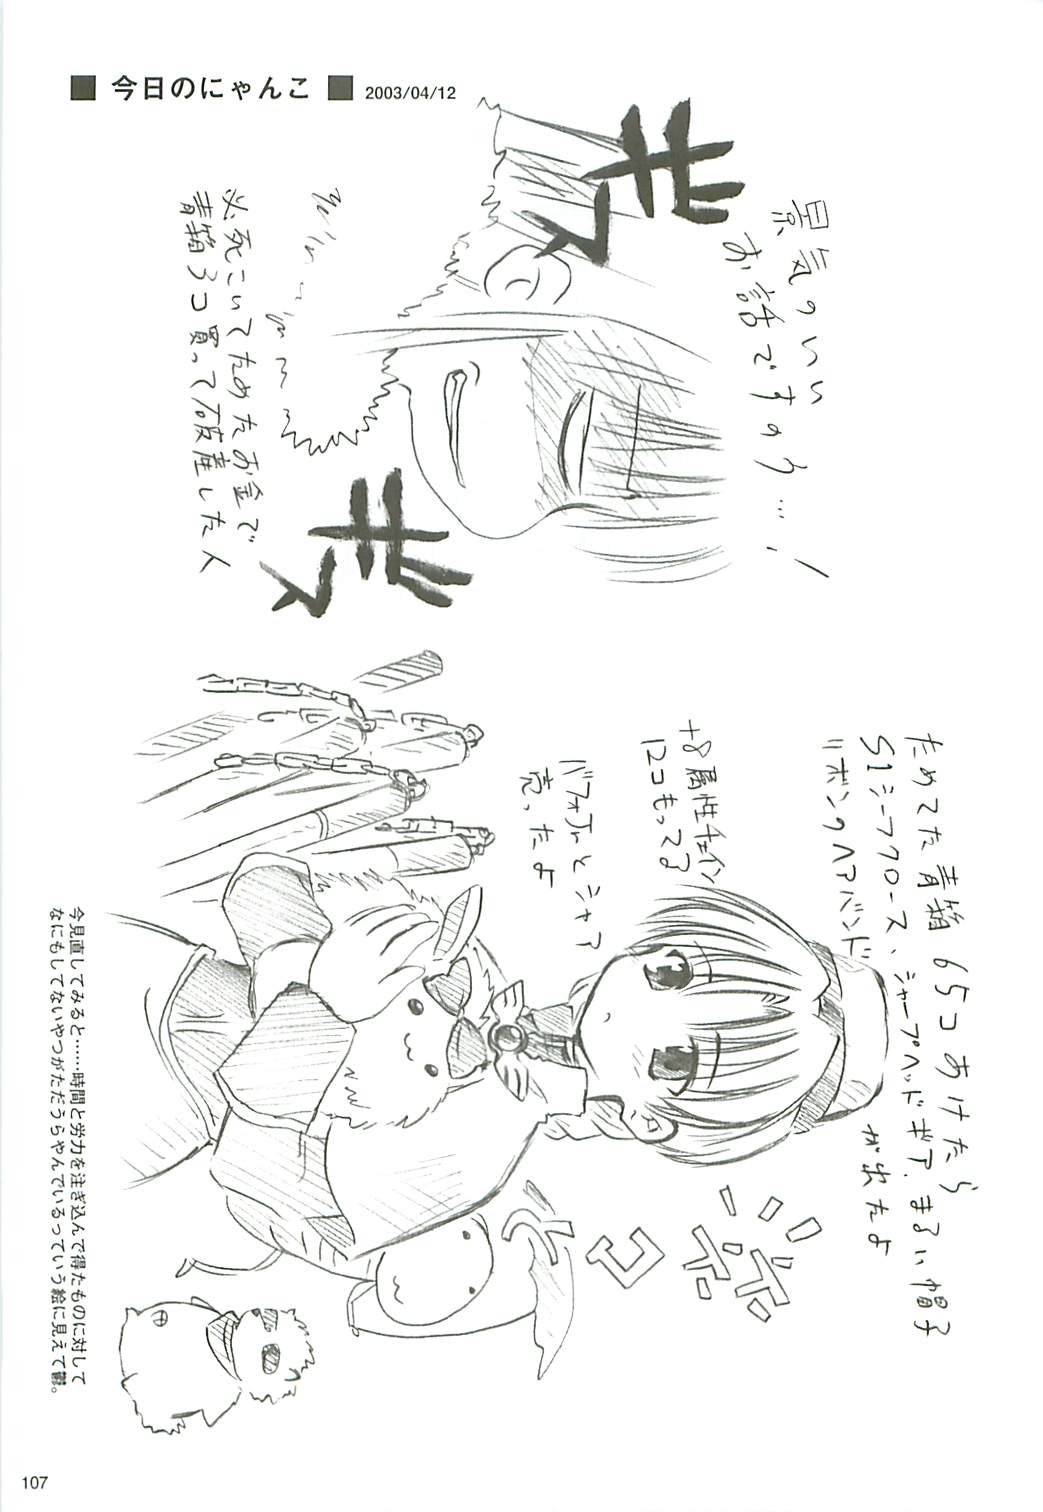 ■ 今日のにゃんこ ■ 2003/04/12
景気のいい
お話ですのう…！
ギュ
ギュ
必死こいてためたお金で
青箱3コ買って破産した人
ためてた青箱 65コあけたら
S1シーフクロース、シャープヘッドギア、まるい帽子
リボンのヘアバンド が出たよ
+8属性チェイン
12コもってる
バフォJrとシャア
売ったよ
ホホコ
今見直してみると……時間と労力を注ぎ込んで得たものに対して
なにもしてないやつがただうらやんでいるっていう絵に見えて鬱。
107